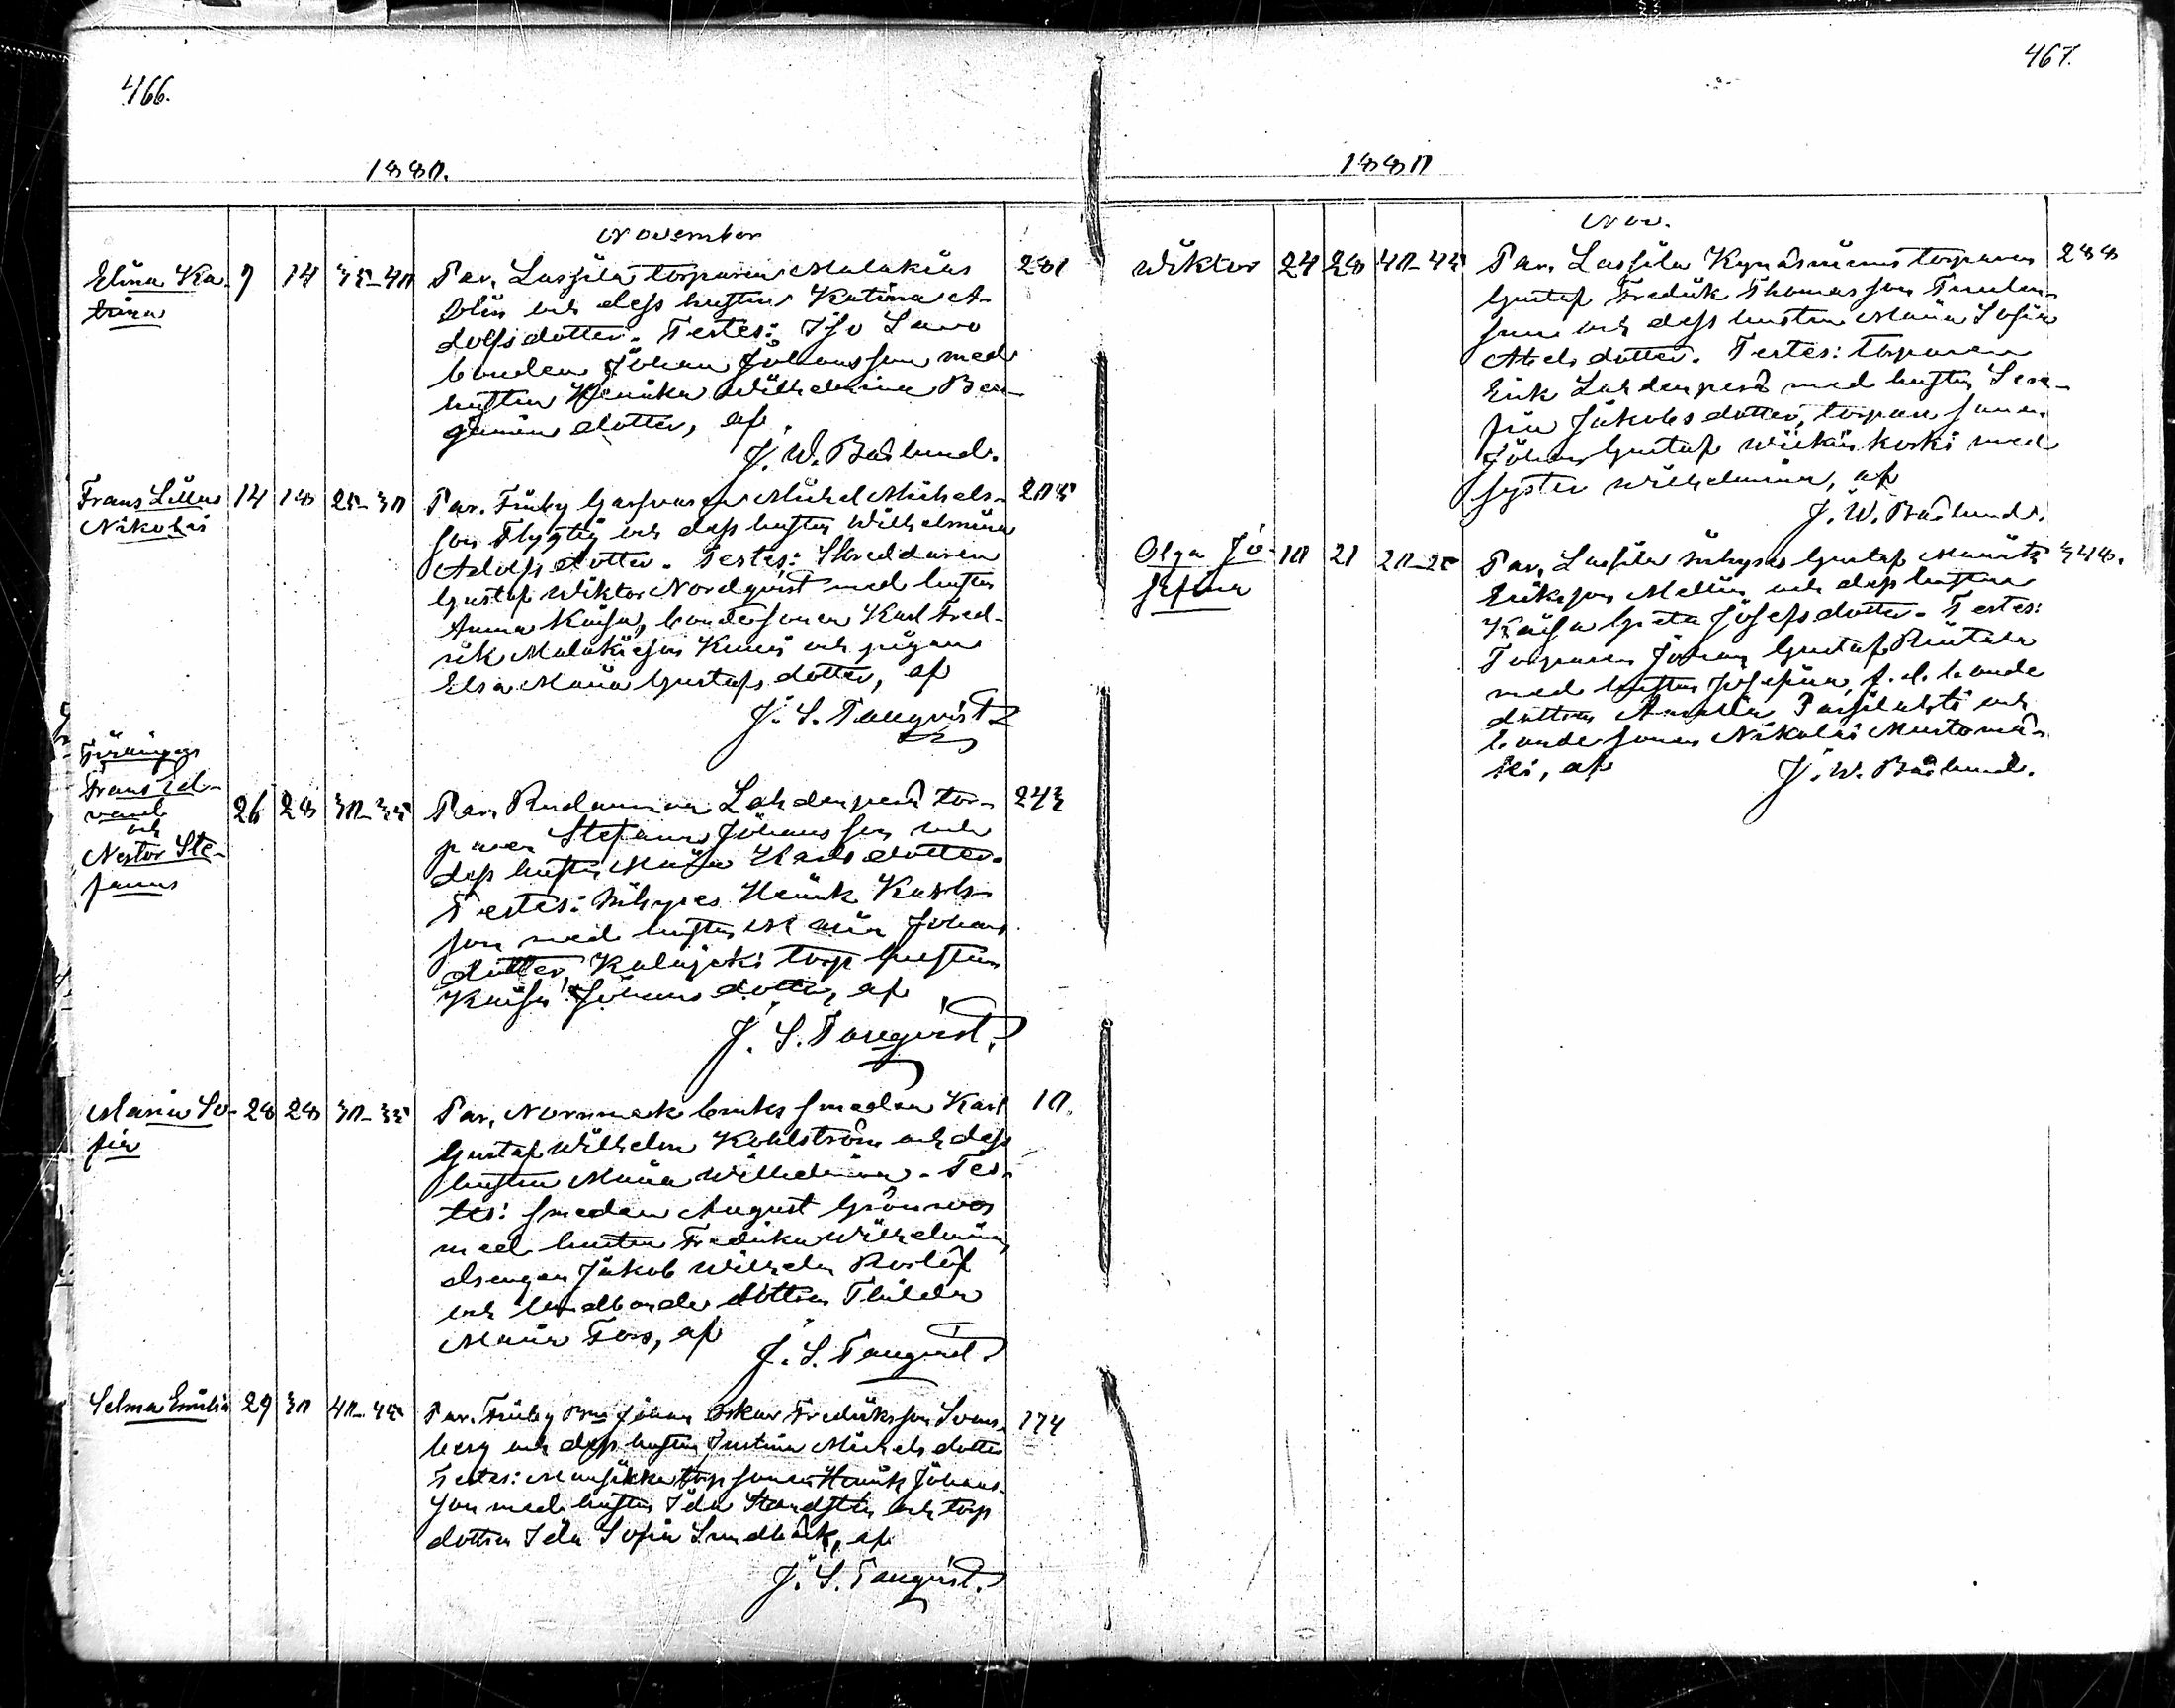 466.
1880.
November
Elina Ka- 7 14 35-40 Par. Lassila torparen Malakias 281
trina
Olin och dess hustru Katrina A-
dolfsdotter. Testes: Iso Lauro
bonden Johan Johansson med
hustru Henrika Wilhelmina Ben-
jamins dotter, af
J. W. Båslund.
Frans Linus 14 18 25-30 Par. Finby Michel Michels- 205
Nikolai
son Flygtig och dess hustru Wilhelmina
Adolfs dotter. Testes: Skreddaren
Gustaf Wiktor Nordqvist med hustru
Anna Kaisa, bondesonen Karl Fred-
rik Malakiasson Knuus och pigan
Elsa Maria Gustafs dotter, af
J. S. Tanqvist
Tvillingar
Frans Ed-
vard 26 28 30-35 Par. Rudanmaa Lahdenperä tor- 243
och
Nestor Ste-
fanus
paren Stefanus Johansson och
dess hustru Maja Karls dotter.
Testes: Inhyses Henrik Karls-
son med hustru Maria Johans
dotter, Kalajoki torp hustrun
Kaisa Johans dotter, af
J. S. Tanqvist.
Maria So- 28 28 30-35 Par. Norrmark bruks smeden Karl 10.
fia
Gustaf Wilhelm Kohlström och dess
hustru Maria Wilhelmina. Tes-
tes: smeden August Grönroos
med hustru Fredrika Wilhelmina,
drengen Jakob Wilhelm Roslöf
och landbonde dottren Thilda
Maria Fors, af
J. S. Tanqvist.
Selma Emilia 29 30 40-45 Par. Finby Johan Oskar Fredriksson Svans- 174
berg och dess hustru Justina Michels dotter
Testes: Mansikka torp sonen Henrik Johans-
son med hustru Ida Sandsten och torp
dottren Ida Sofia Sundbäck, af
J. S. Tanqvist.
467.
1880
Nov.
Wiktor 24 28 40-45 Par. Lassila Kynäsniemi torparen 288
Gustaf Fredrik Thomasson Tuulen-
suu och dess hustru Maria Sofia
Abels dotter. Testes: torparen
Erik Lahdenperä med hustru Sera-
fia Jakobs dotter, torpare sonen
Johan Gustaf Wiikinkoski med
syster Wilhelmina, af
J. W. Båslund.
Olga Jo- 10 21 20-25 Par. Lassila inhyses Gustaf Maurits 348.
sefina
Eriksson Mellin och dess hustru
Kaisa Greta Josefs dotter. Testes:
Torparen Johan Gustaf Rintala
med hustru Josefina, f. d. bonde
dottren Amalia Passilahti och
bonde sonen Nikolai Mustamä-
ki, af J. W. Båslund.